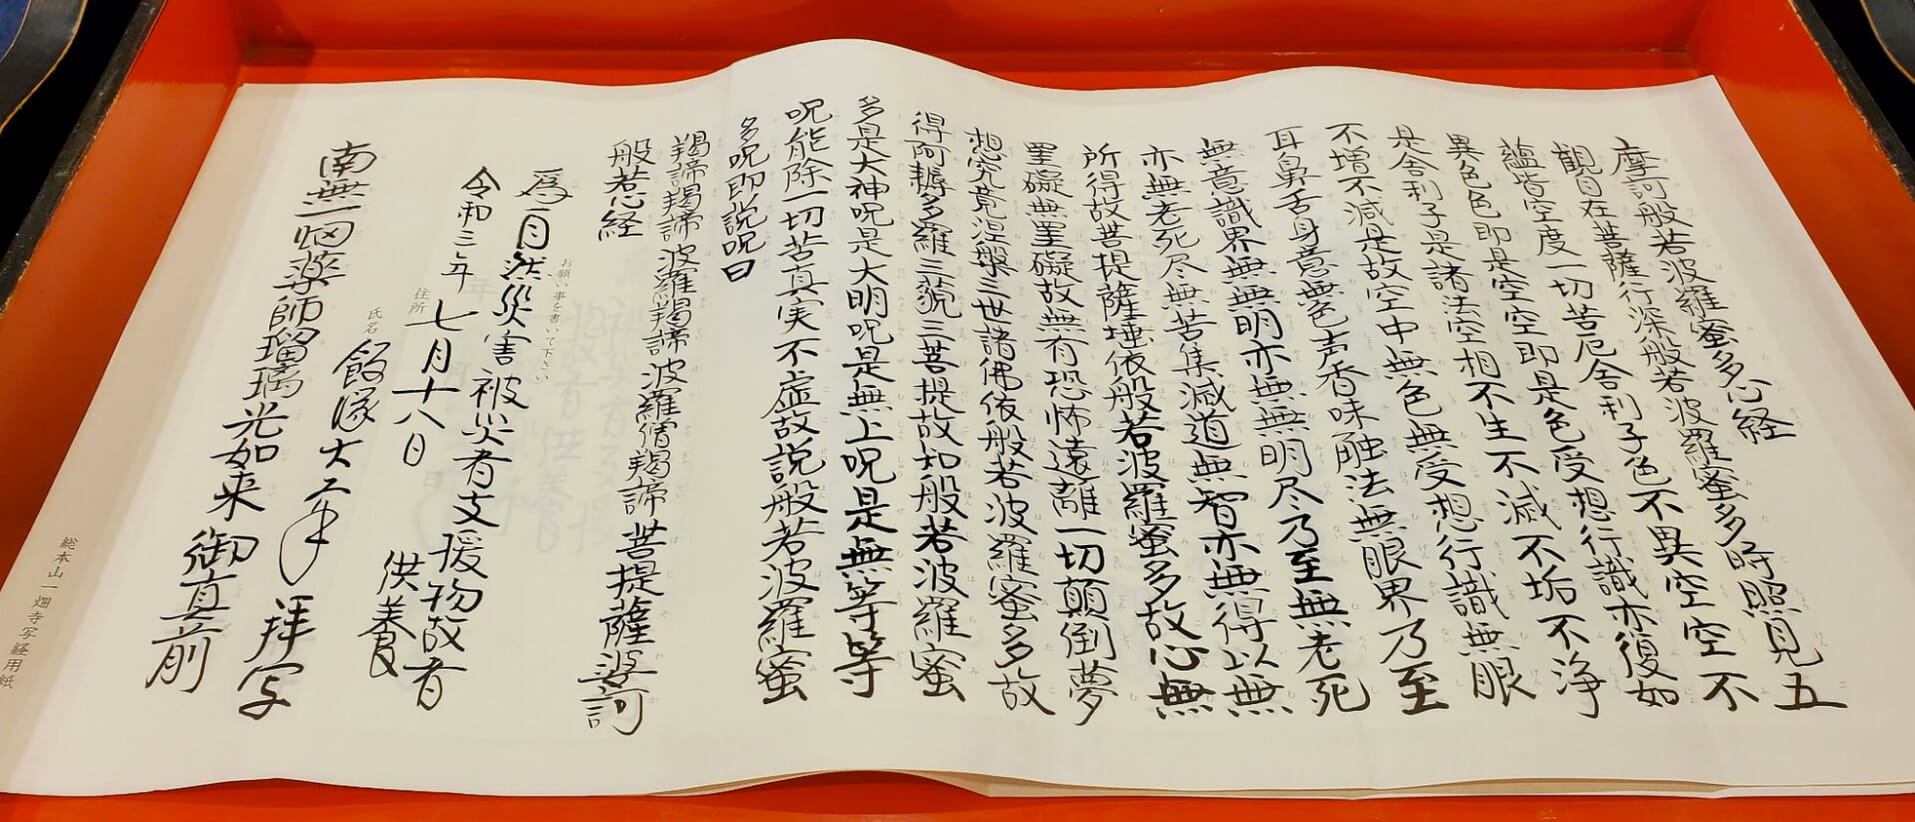 摩訶般若波羅蜜多心経
観自在菩薩行深般若波羅蜜多時照見五
蘊皆空度一切苦厄舎利子色不異空空不
異色色即是空空即是色受想行識亦復如
是舎利子是諸法空相不生不滅不垢不浄
不増不減是故空中無色無受想行識無眼
耳鼻舌身意無色声香味触法無眼界乃至
無意識界無無明亦無無明尽乃至無老死
亦無老死尽無苦集滅道無智亦無得以無
所得故菩提薩埵依般若波羅蜜多故心無
罣礙無罣礙故無有恐怖遠離一切顛倒夢
想究竟涅槃三世諸佛依般若波羅蜜多故
得阿耨多羅三藐三菩提故知般若波羅蜜
多是大神呪是大明呪是無上呪是無等等
呪能除一切苦真実不虚故説般若波羅蜜
多呪即説呪曰
羯諦羯諦波羅羯諦波羅僧羯諦菩提薩婆訶
般若心経
お願い事を書いて下さい
為自然災害被災者支援物故者
供養
令和三年七月十八日
住所
氏名
飯塚大幸拝写
南無一畑薬師瑠璃光如来御真前
総本山一畑寺写経用紙